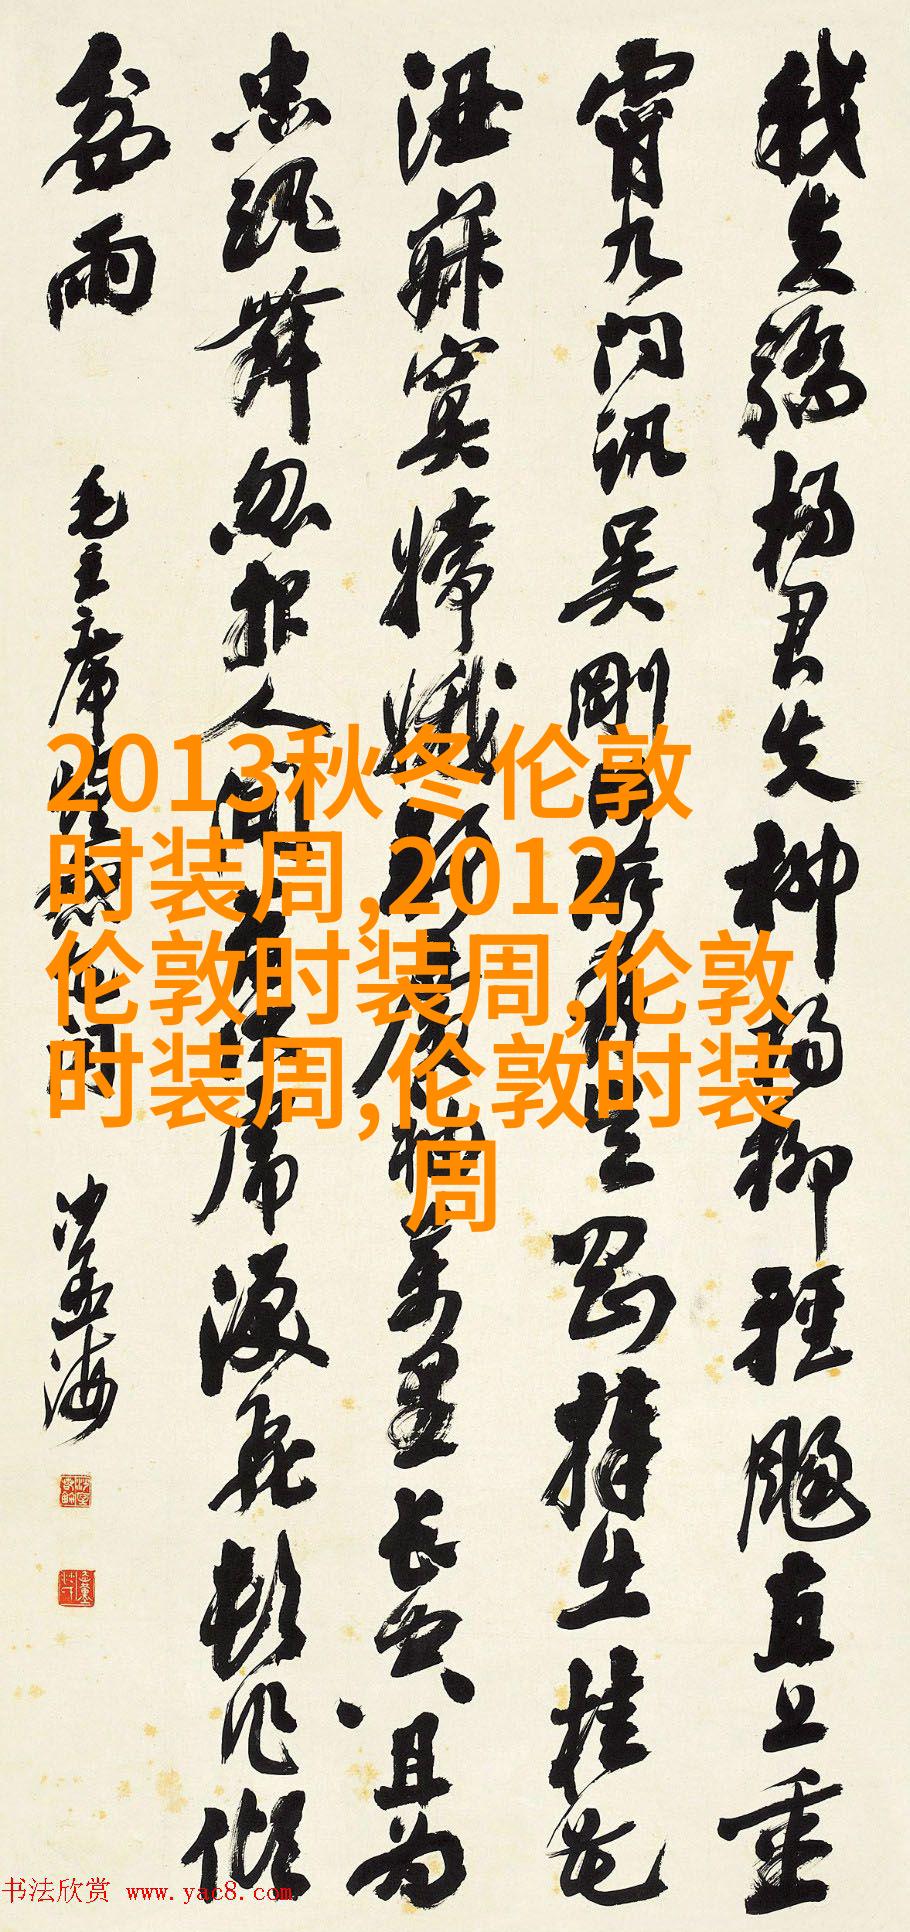 我失驕杨君失柳杨柳輕飏直上重
霄九問訊吴剛何所有吴剛捧出桂花
酒寂寞嫦娥舒广袖万里长空且为
忠魂舞忽报人间曾伏虎泪飛顿作倾
盆雨
毛主席蝶恋花词
沙孟海
2013秋冬伦敦
时装周,2012
伦敦时装周,伦敦
时装周,伦敦时装
周
书法欣赏 www.yac8.com